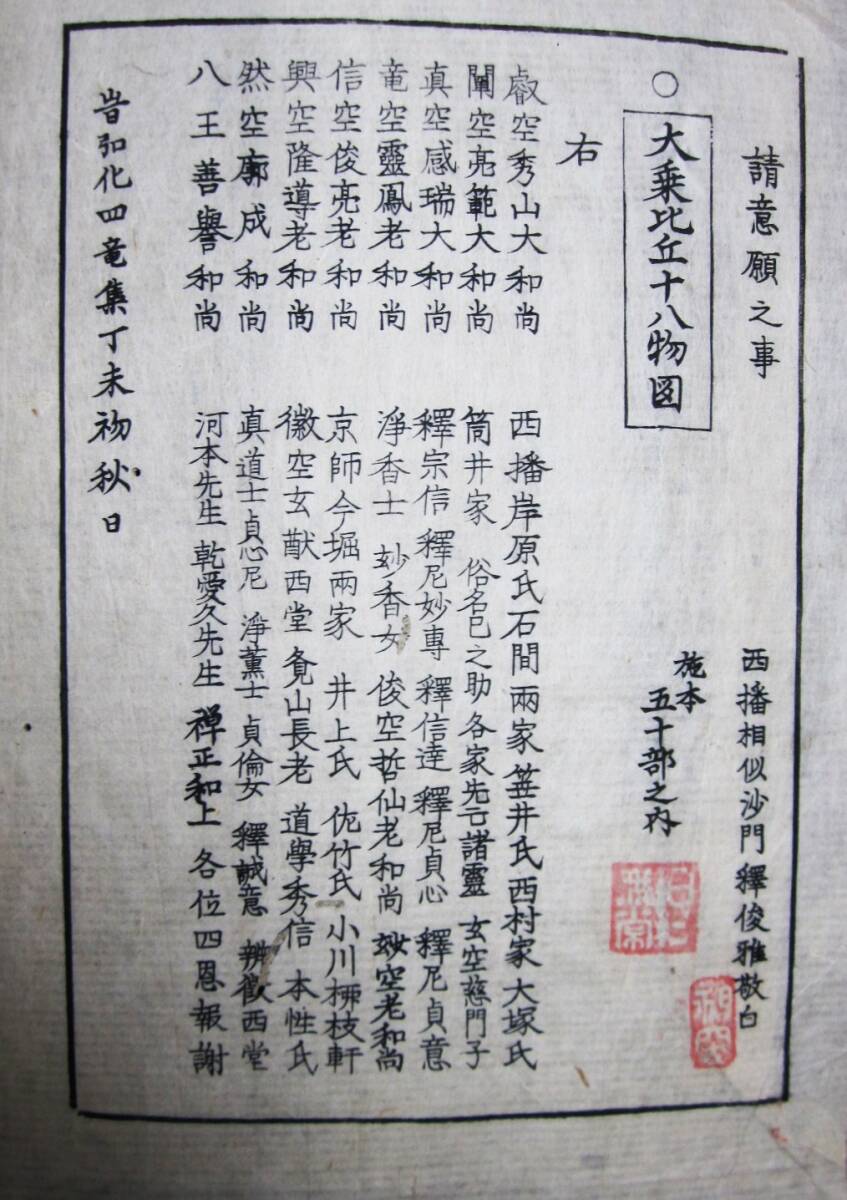 請意願之事
西播相似沙門釋俊雅敬白
○大乗比丘十八物図
施本
五十部之内
右
叡空秀山大和尚 西播岸原氏石間兩家笠井氏西村家大塚氏
闡空亮範大和尚 筒井家 俗名巳之助各家先亡諸靈 玄空慈門子
真空感瑞大和尚 釋宗信 釋尼妙専 釋信達 釋尼貞心 釋尼貞意
竜空靈鳳老和尚 淨香士 妙香女 俊空哲仙老和尚 妙空老和尚
信空俊亮老和尚 京師今堀兩家 井上氏 佐竹氏 小川栁枝軒
興空隆導老和尚 徽空玄猷西堂 覓山長老 道學秀信 本性氏
然空廓成和尚 真道士貞心尼 淨薫士 貞倫女 釋誠意 辨教西堂
八王善譽和尚 河本先生 乾愛久先生 禅正和上 各位四恩報謝
旹弘化四竜集丁未初秋日